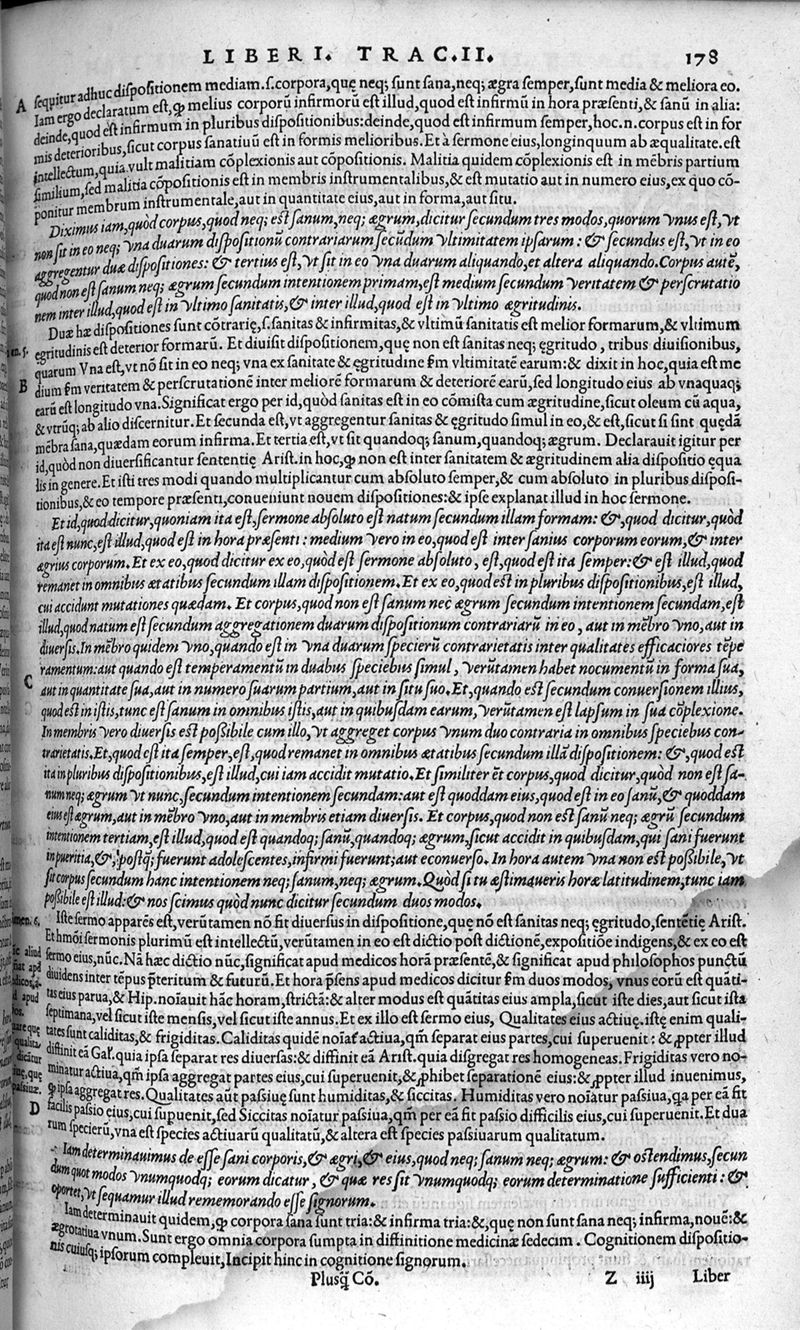 LIBERI. TRAC.II. 178
sequitur adhuc dispositionem mediam.s.corpora,quę neq; sunt sana,neq; ægra semper,sunt media & meliora eo.
A Iam ergo declaratum est,ꝙ melius corporũ infirmorũ est illud,quod est infirmũ in hora præsenti,& sanũ in alia:
deinde,quod est infirmum in pluribus dispositionibus:deinde,quod est infirmum semper,hoc.n.corpus est in for
mis deterioribus,sicut corpus sanatiuũ est in formis melioribus.Et à sermone eius,longinquum ab æqualitate.est
intellectum,quia vult malitiam cõplexionis aut cõpositionis. Malitia quidem cõplexionis est in mẽbris partium
similium,sed malitia cõpositionis est in membris instrumentalibus,& est mutatio aut in numero eius,ex quo cõ-
ponitur membrum instrumentale,aut in quantitate eius,aut in forma,aut situ.
Diximus iam,quòd corpus,quod neq; est sanum,neq; ægrum,dicitur secundum tres modos,quorum vnus est,vt
non sit in eo neq; vna duarum dispositionũ contrariarum secũdum vltimitatem ipsarum: & secundus est,vt in eo
aggregentur duæ dispositiones: & tertius est,vt sit in eo vna duarum aliquando,et altera aliquando.Corpus autẽ,
quod non est sanum neq; ægrum secundum intentionem primam,est medium secundum veritatem & perscrutatio
nem inter illud,quod est in vltimo sanitatis,& inter illud,quod est in vltimo ægritudinis.
Duæ hæ dispositiones sunt cõtrarię,s.sanitas & infirmitas,& vltimũ sanitatis est melior formarum,& vltimum
egritudinis est deterior formarũ. Et diuisit dispositionem,quę non est sanitas neq; ęgritudo, tribus diuisionibus,
quarum Vna est,vt nõ sit in eo neq; vna ex sanitate & ęgritudine s̃m vltimitatẽ earum:& dixit in hoc,quia est me
B dium s̃m veritatem & perscrutationẽ inter meliorẽ formarum & deteriorẽ earũ,sed longitudo eius ab vnaquaq;
earũ est longitudo vna.Significat ergo per id,quòd sanitas est in eo cõmista cum ægritudine,sicut oleum cũ aqua,
& vtrũq; ab alio discernitur.Et secunda est,vt aggregentur sanitas & ęgritudo simul in eo,& est,sicut si sint quędã
mẽbra sana,quædam eorum infirma.Et tertia est,vt sit quandoq; sanum,quandoq; ægrum. Declarauit igitur per
id,quòd non diuersificantur sententię Arist.in hoc,ꝙ non est inter sanitatem & ægritudinem alia dispositio ęqua
lis in genere.Et isti tres modi quando multiplicantur cum absoluto semper,& cum absoluto in pluribus disposi-
tionibus,& eo tempore præsenti,conueniunt nouem dispositiones:& ipse explanat illud in hoc sermone.
Et id,quod dicitur,quoniam ita est,sermone absoluto est natum secundum illam formam: &,quod dicitur,quòd
ita est nunc,est illud,quod est in hora præsenti: medium vero in eo,quod est inter sanius corporum eorum,& inter
ægrius corporum.Et ex eo,quod dicitur ex eo,quòd est sermone absoluto, est,quod est ita semper:& est illud,quod
remanet in omnibus ætatibus secundum illam dispositionem.Et ex eo,quod est in pluribus dispositionibus,est illud,
cui accidunt mutationes quædam. Et corpus,quod non est sanum nec ægrum secundum intentionem secundam,est
illud,quod natum est secundum aggregationem duarum dispositionum contrariarũ in eo, aut in mẽbro vno,aut in
diuersis.In mẽbro quidem vno,quando est in vna duarum specierũ contrarietatis inter qualitates efficaciores tẽpe
ramentum:aut quando est temperamentũ in duabus speciebus simul, verũtamen habet nocumentũ in forma sua,
C aut in quantitate sua,aut in numero suarum partium,aut in situ suo.Et,quando est secundum conuersionem illius,
quod est in istis,tunc est sanum in omnibus istis,aut in quibusdam earum,verũtamen est lapsum in sua cõplexione.
In membris vero diuersis est possibile cum illo,vt aggreget corpus vnum duo contraria in omnibus speciebus con-
trarietatis.Et,quod est ita semper,est,quod remanet in omnibus ætatibus secundum illã dispositionem: &,quod est
ita in pluribus dispositionibus,est illud,cui iam accidit mutatio.Et similiter ẽt corpus,quod dicitur,quòd non est sa-
num neq; ægrum vt nunc,secundum intentionem secundam:aut est quoddam eius,quod est in eo sanũ,& quoddam
eius est ægrum,aut in mẽbro vno,aut in membris etiam diuersis. Et corpus,quod non est sanũ neq; ægrũ secundum
intentionem tertiam,est illud,quod est quandoq; sanũ,quandoq; ægrum,sicut accidit in quibusdam,qui sani fuerunt
in pueritia,&,postq̃; fuerunt adolescentes,infirmi fuerunt;aut econuerso. In hora autem vna non est possibile,vt
sit corpus secundum hanc intentionem neq; sanum,neq; ægrum.Quòd si tu æstimaueris horæ latitudinem,tunc iam
possibile est illud:& nos scimus quòd nunc dicitur secundum duos modos.
Iste sermo apparẽs est,verũtamen nõ fit diuersus in dispositione,quę nõ est sanitas neq; ęgritudo,sentẽtię Arist.
Et hmõi sermonis plurimũ est intellectũ,verũtamen in eo est dictio post dictionẽ,expositiõe indigens,& ex eo est
sermo eius,nũc. Nã hæc dictio nũc,significat apud medicos horã præsentẽ,& significat apud philosophos punctũ
diuidens inter tẽpus p̃teritum & futurũ. Et hora p̃sens apud medicos dicitur s̃m duos modos, vnus eorũ est quãti-
tas eius parua,& Hip.noĩauit hãc horam,strictã:& alter modus est quãtitas eius ampla,sicut iste dies,aut sicut ista
septimana,vel sicut iste mensis,vel sicut iste annus.Et ex illo est sermo eius, Qualitates eius actiuę.istę enim quali-
tates sunt caliditas,& frigiditas. Caliditas quidẽ noĩat̃ actiua,qm̃ separat eius partes,cui superuenit: & ꝓpter illud
diffinit eã Gal.quia ipsa separat res diuersas:& diffinit eã Arist.quia disgregat res homogeneas.Frigiditas vero no-
minatur actiua,qm̃ ipsa aggregat partes eius,cui superuenit,& ꝓhibet separationẽ eius:& ꝓpter illud inuenimus,
ꝙ ipsa aggregat res.Qualitates aũt passiuę sunt humiditas,& siccitas. Humiditas vero noĩatur passiua,q̃a per eã fit
D facilis passio eius,cui supuenit,sed Siccitas noĩatur passiua,qm̃ per eã fit passio difficilis eius,cui superuenit.Et dua
rum specierũ,vna est species actiuarũ qualitatũ,& altera est species passiuarum qualitatum.
Iam determinauimus de esse sani corporis,& ægri,& eius,quod neq; sanum neq; ægrum: & ostendimus,secun
dum quot modos vnumquodq; eorum dicatur, & quæ res sit vnumquodq; eorum determinatione sufficienti: &
oportet,vt sequamur illud rememorando esse signorum.
Iam determinauit quidem,ꝙ corpora sana sunt tria:& infirma tria:&,quę non sunt sana neq; infirma,nouẽ:&
ægrotatiua vnum.Sunt ergo omnia corpora sumpta in diffinitione medicinæ sedecim. Cognitionem dispositio-
nis cuiusq; ipsorum compleuit,Incipit hinc in cognitione signorum.
Plusq̃ Cõ. Z iiij Liber